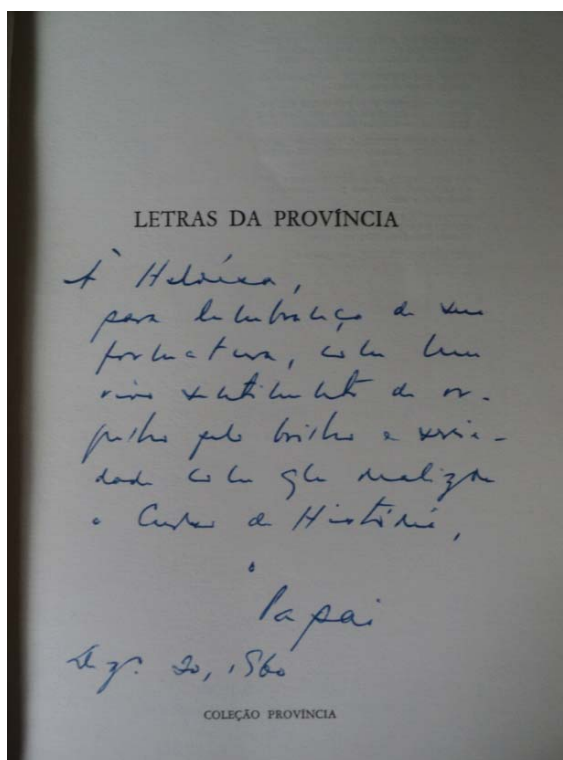 LETRAS DA PROVÍNCIA
À Heloísa,
para lembrança de sua
formatura, com um
vivo sentimento de or-
gulho pelo brilho e serie-
dade com que realizou
o Curso de História,
o
Papai
Dez. 20, 1960
COLEÇÃO PROVÍNCIA